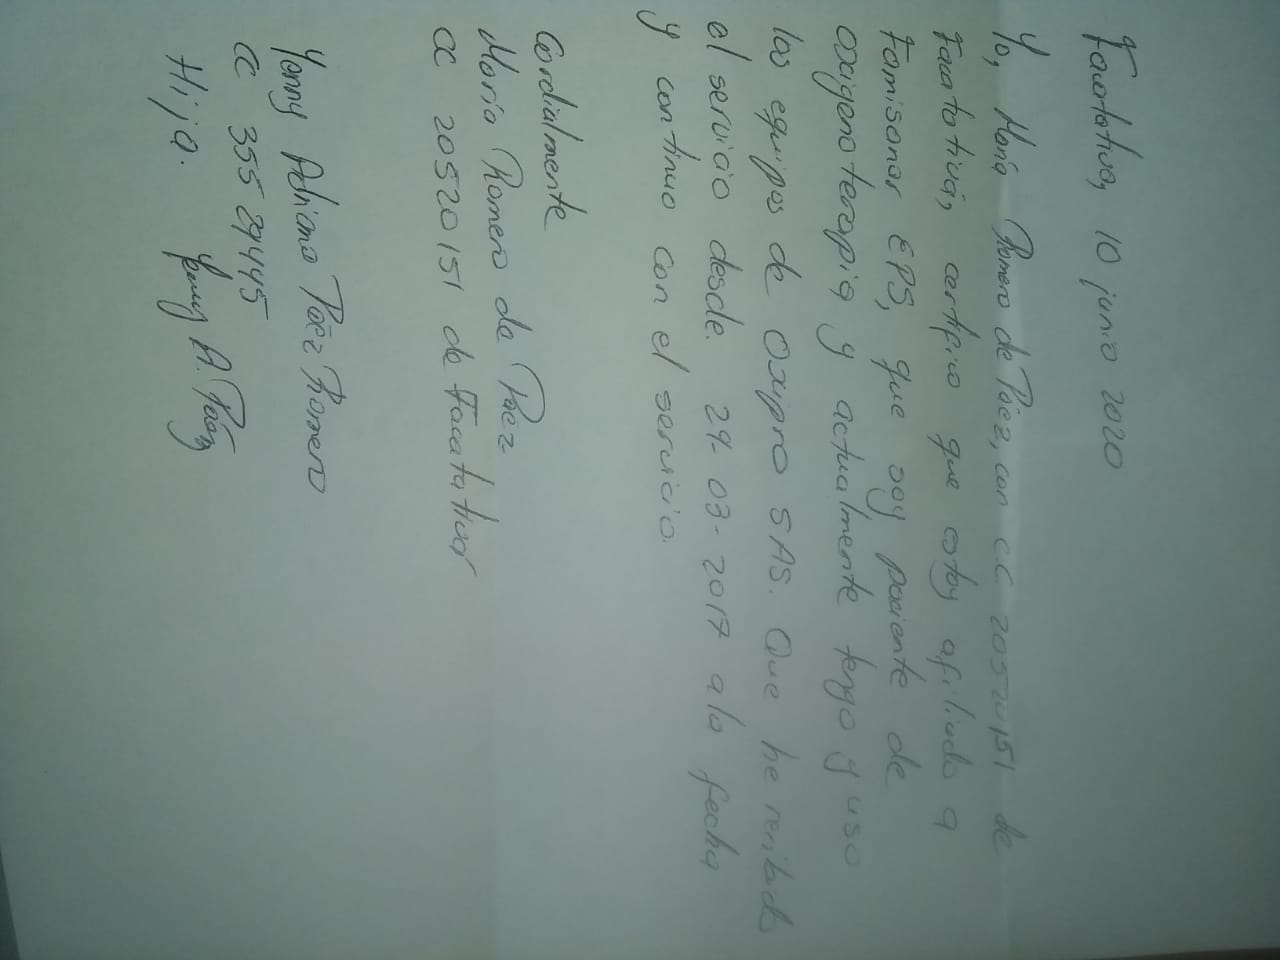 Facatativa, 10 junio 2020
Yo, María Romero de Páez, con c.c. 20520151 de
Facatativá, certifico que estoy afiliada a
Famisanar EPS, que soy paciente de
oxigenoterapia y actualmente tengo y uso
los equipos de Oxipro SAS. Que he recibido
el servicio desde 29-03-2017 a la fecha
y continuo con el servicio.
Cordialmente
María Romero de Páez
CC 20520151 de Facatativa
Yenny Adriana Páez Romero
CC 35529445
Hija. Yenny A. Páez